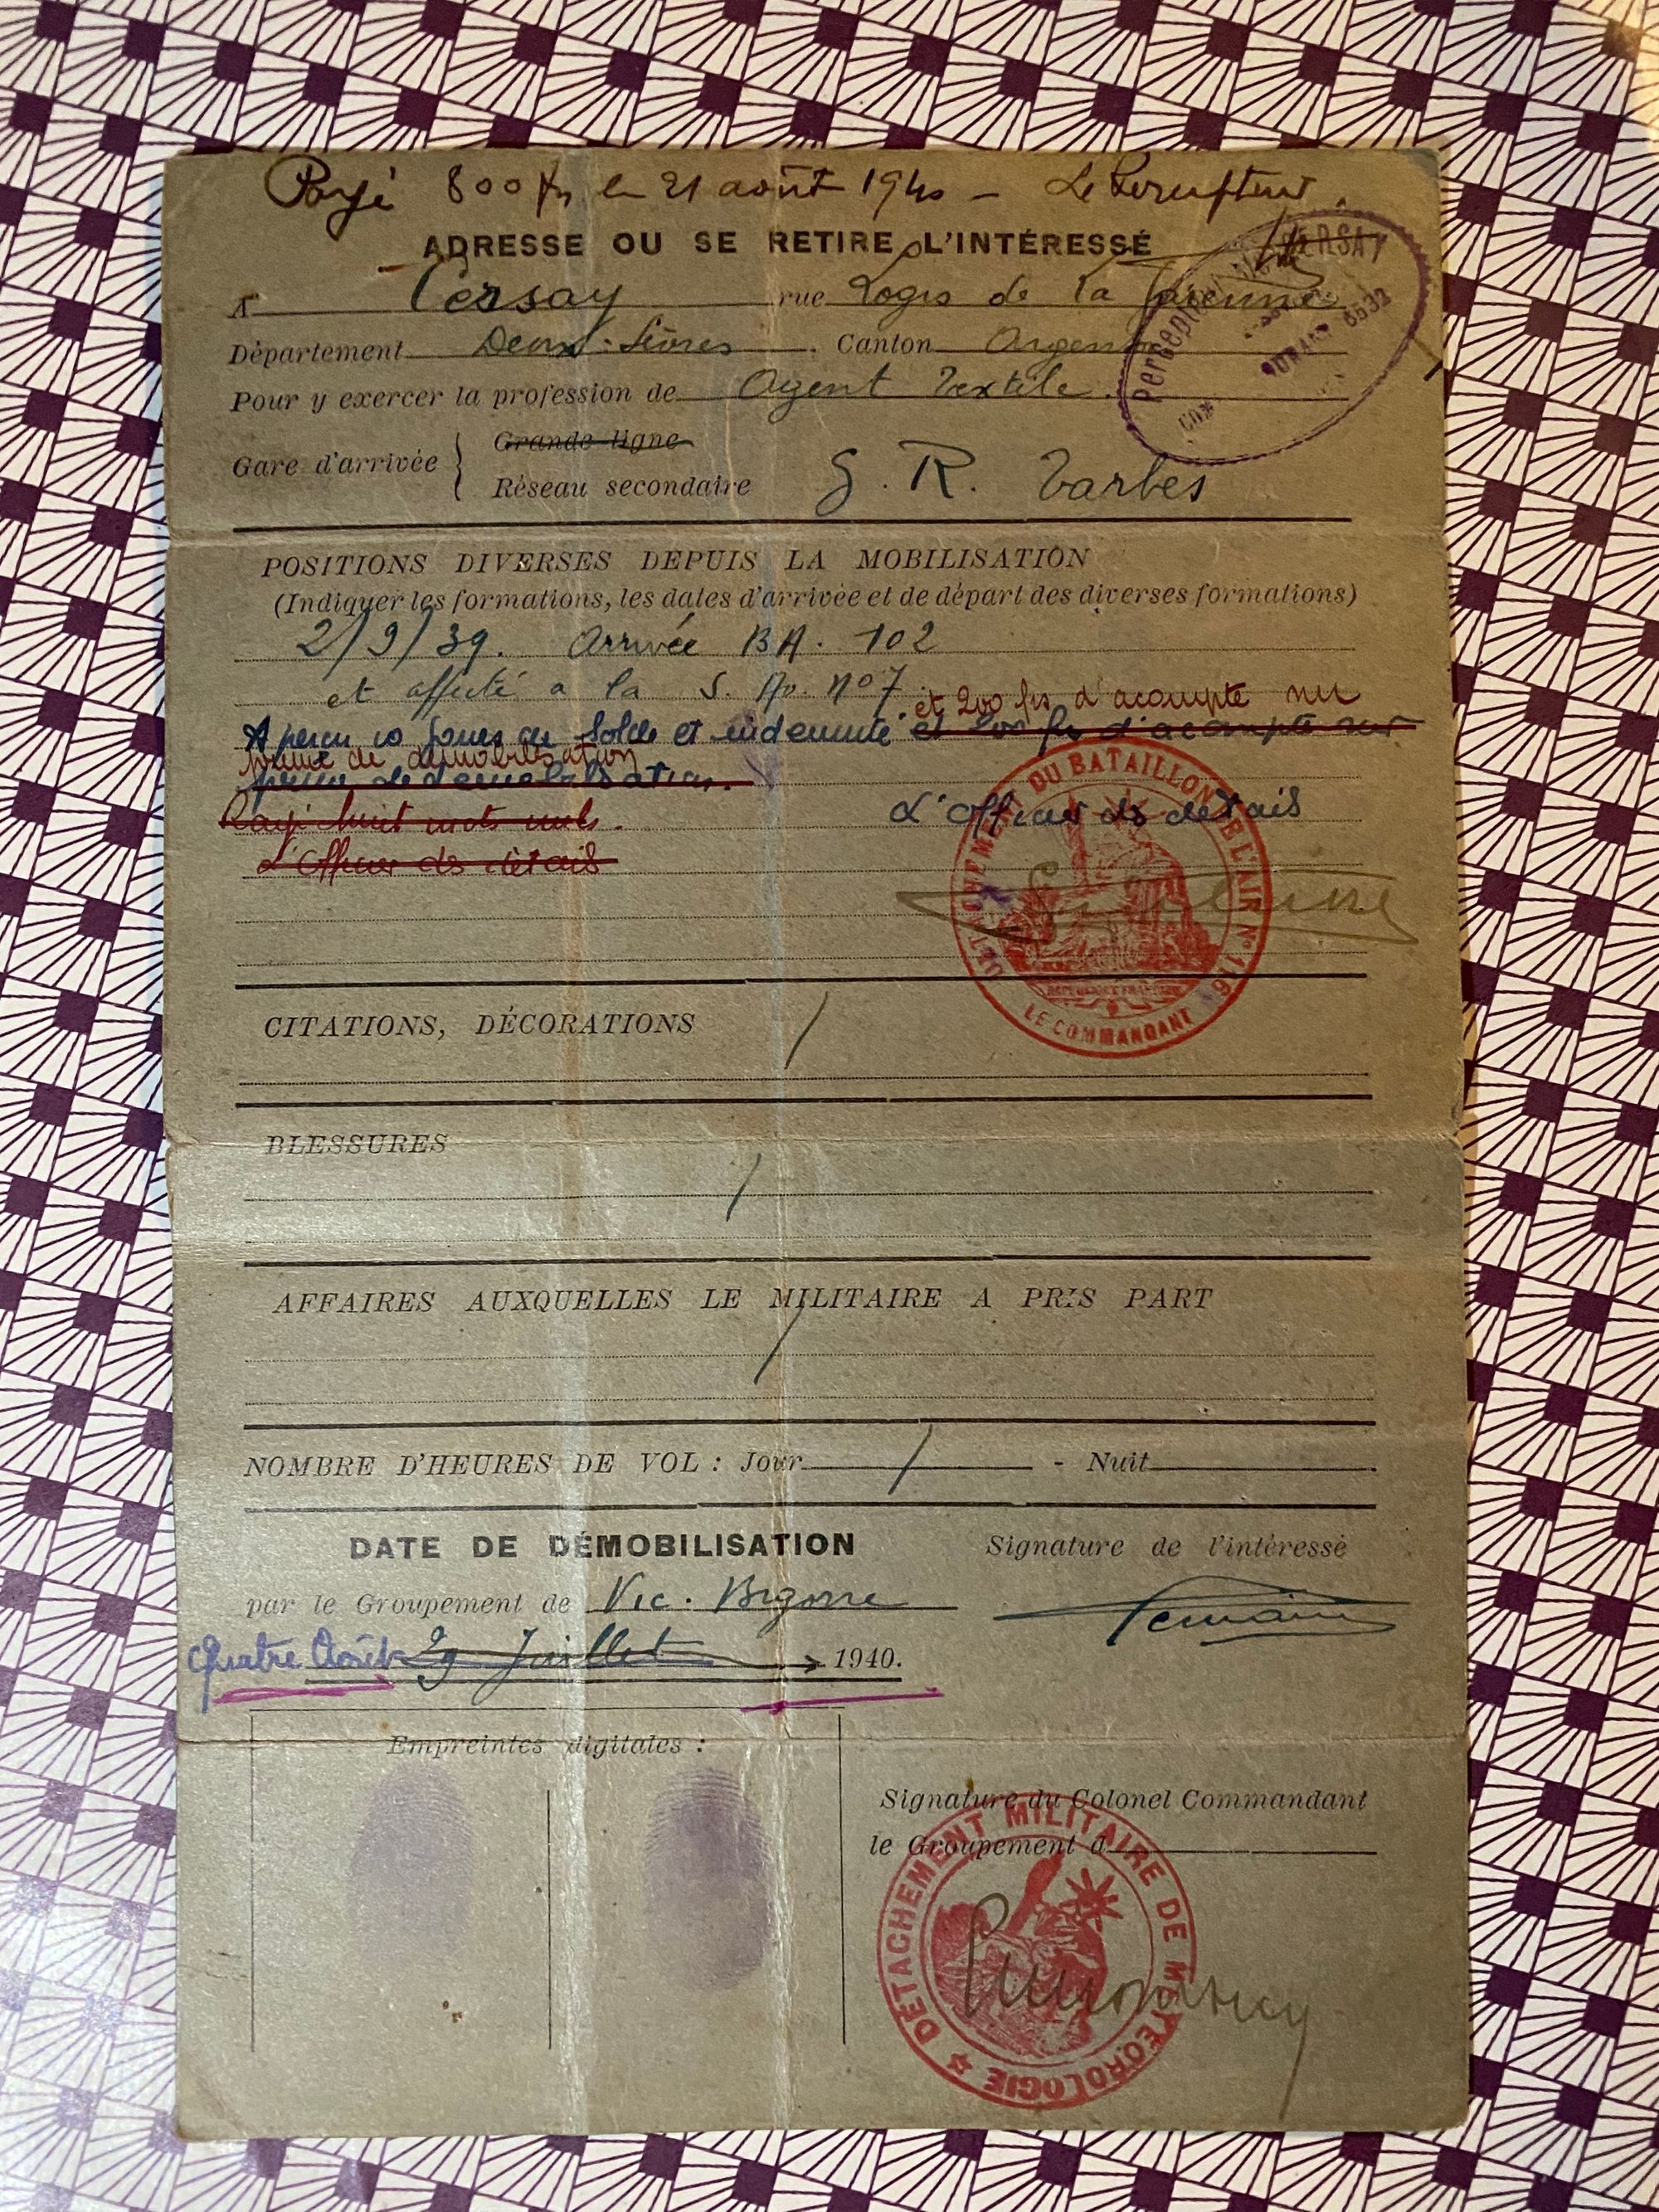 Payé 800 frs le 21 août 1940 - Le Percepteur
ADRESSE OU SE RETIRE L'INTÉRESSÉ
A Cersay rue Logis de la Garenne
Département Deux-Sèvres Canton Argenton
Pour y exercer la profession de Agent Textile.
Gare d'arrivée { Grande ligne
Réseau secondaire G. R. Tarbes
Perception CERSAY
6532
POSITIONS DIVERSES DEPUIS LA MOBILISATION
(Indiquer les formations, les dates d'arrivée et de départ des diverses formations)
2/9/39. Arrivée BA. 102
et affecté a la S. Au. N° 7
et 200 frs d'acompte sur
A perçu 10 jours de Solde et indemnité et 200 frs d'acompte sur
prime de démobilisation
prime de démobilisation.
Rayé huit mots nuls.
L'Officier des détails
L'Officier des détails
DÉTACHEMENT DU BATAILLON DE L'AIR N° 116
LE COMMANDANT
CITATIONS, DÉCORATIONS /
BLESSURES
/
AFFAIRES AUXQUELLES LE MILITAIRE A PRIS PART
/
NOMBRE D'HEURES DE VOL : Jour / - Nuit
DATE DE DÉMOBILISATION
Signature de l'intéressé
par le Groupement de Vic. Bigorre
Quatre Août 29 Juillet 1940.
Empreintes digitales :
Signature du Colonel Commandant
le Groupement d
DÉTACHEMENT MILITAIRE DE MÉTÉOROLOGIE